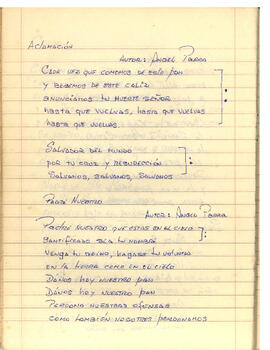 Aclamación
Autor: Angel Parra
Cada vez que comemos de este pan
y bebemos de este caliz
anunciamos tu muerte Señor
hasta que vuelvas, hasta que vuelvas
hasta que vuelvas.
Salvador del mundo
por tu cruz y resurrección
Salvanos, salvanos, salvanos
Padre Nuestro
Autor: Angel Parra
Padre nuestro que estas en el cielo
Santificado sea tu nombre
Venga tu reino, hagase tu voluntad
en la tierra como en el cielo
Dános hoy nuestro pan
Dános hoy nuestro pan
Perdona nuestras ofensas
como también nosotros perdonamos